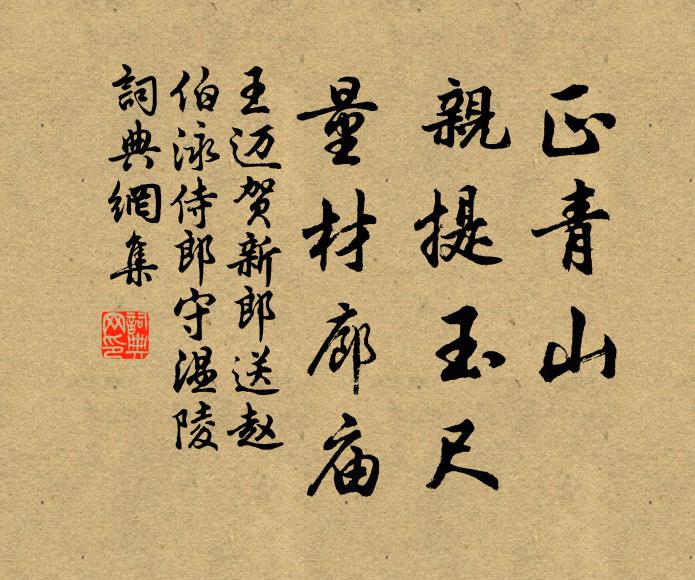 正青山
親提玉尺
量材廊庙
王迈贺新郎送赵
伯泳侍郎守温陵
詞典網集
詞典网印